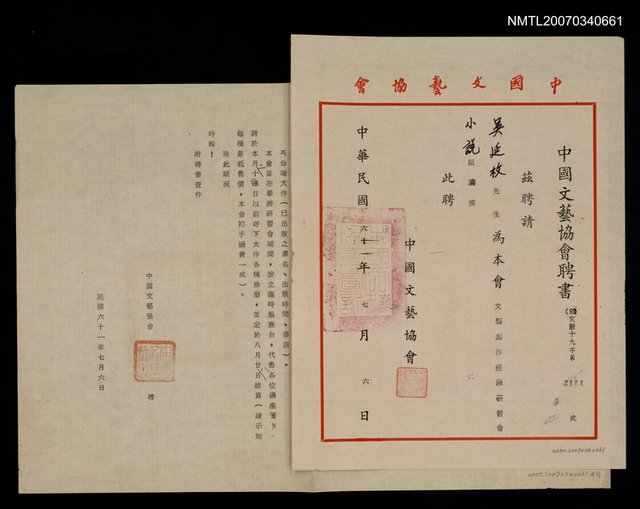 NMTL20070340661
中國文藝協會
中國文藝協會聘書
(61)文藝十九字第 2124 號
茲聘請
吳廷枚 先生 為本會 文藝創作經驗研習會
小說組講座
此聘
中國文藝協會
中華民國六十一年七月六日
NMTL20070340661
台端大作(已出版之書名、出版時間、書店)。
本會並在舉辦研習會期間,設立臨時服務台,代售各位講座著作
請於本月十八日以前寄下大作各種拾冊,並定於八月廿八日結算(請示知
每種最低售價,本會扣手續費一成)。
耑此順祝
時綏!
附聘書壹件
中國文藝協會 啓
民國六十一年七月六日